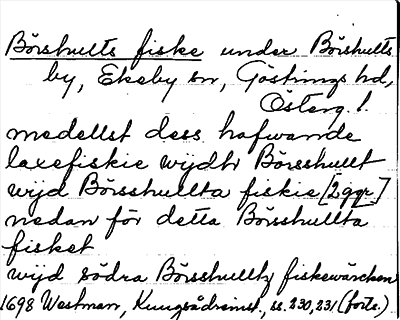 Börshults fiske under Börshults
by, Ekeby sn, Göstrings hd,
Österg. l.
medellst dess hafwande
laxefiskie wijdh Börsshullt
wijd Börsshullta fiskie [2 ggr]
nedan för detta Börsshullta
fisket
wijd södra Börsshulltz fiskewärcken
1698 Westman, Kungsådreinst., ss. 230, 231 (forts.)